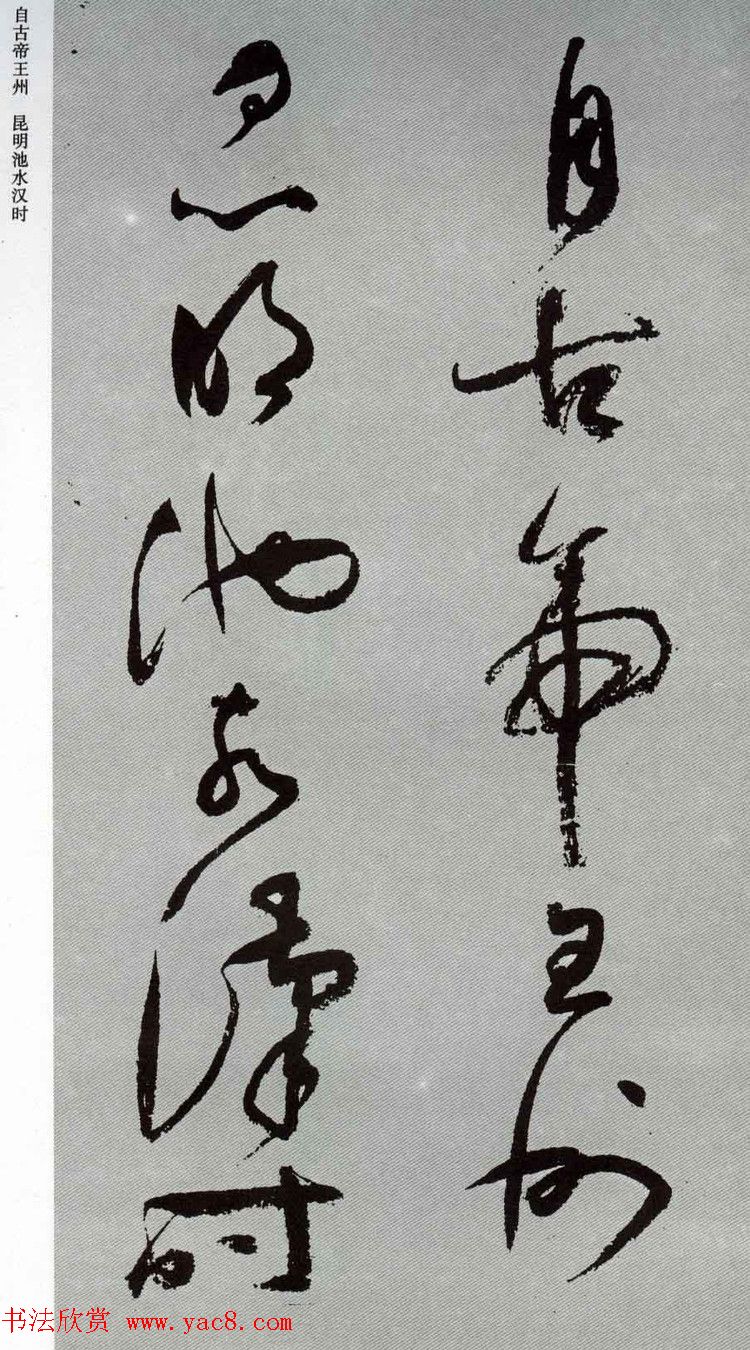 自古帝王州
昆明池水漢時
自古帝王州　昆明池水汉时
书法欣赏 www.yac8.com